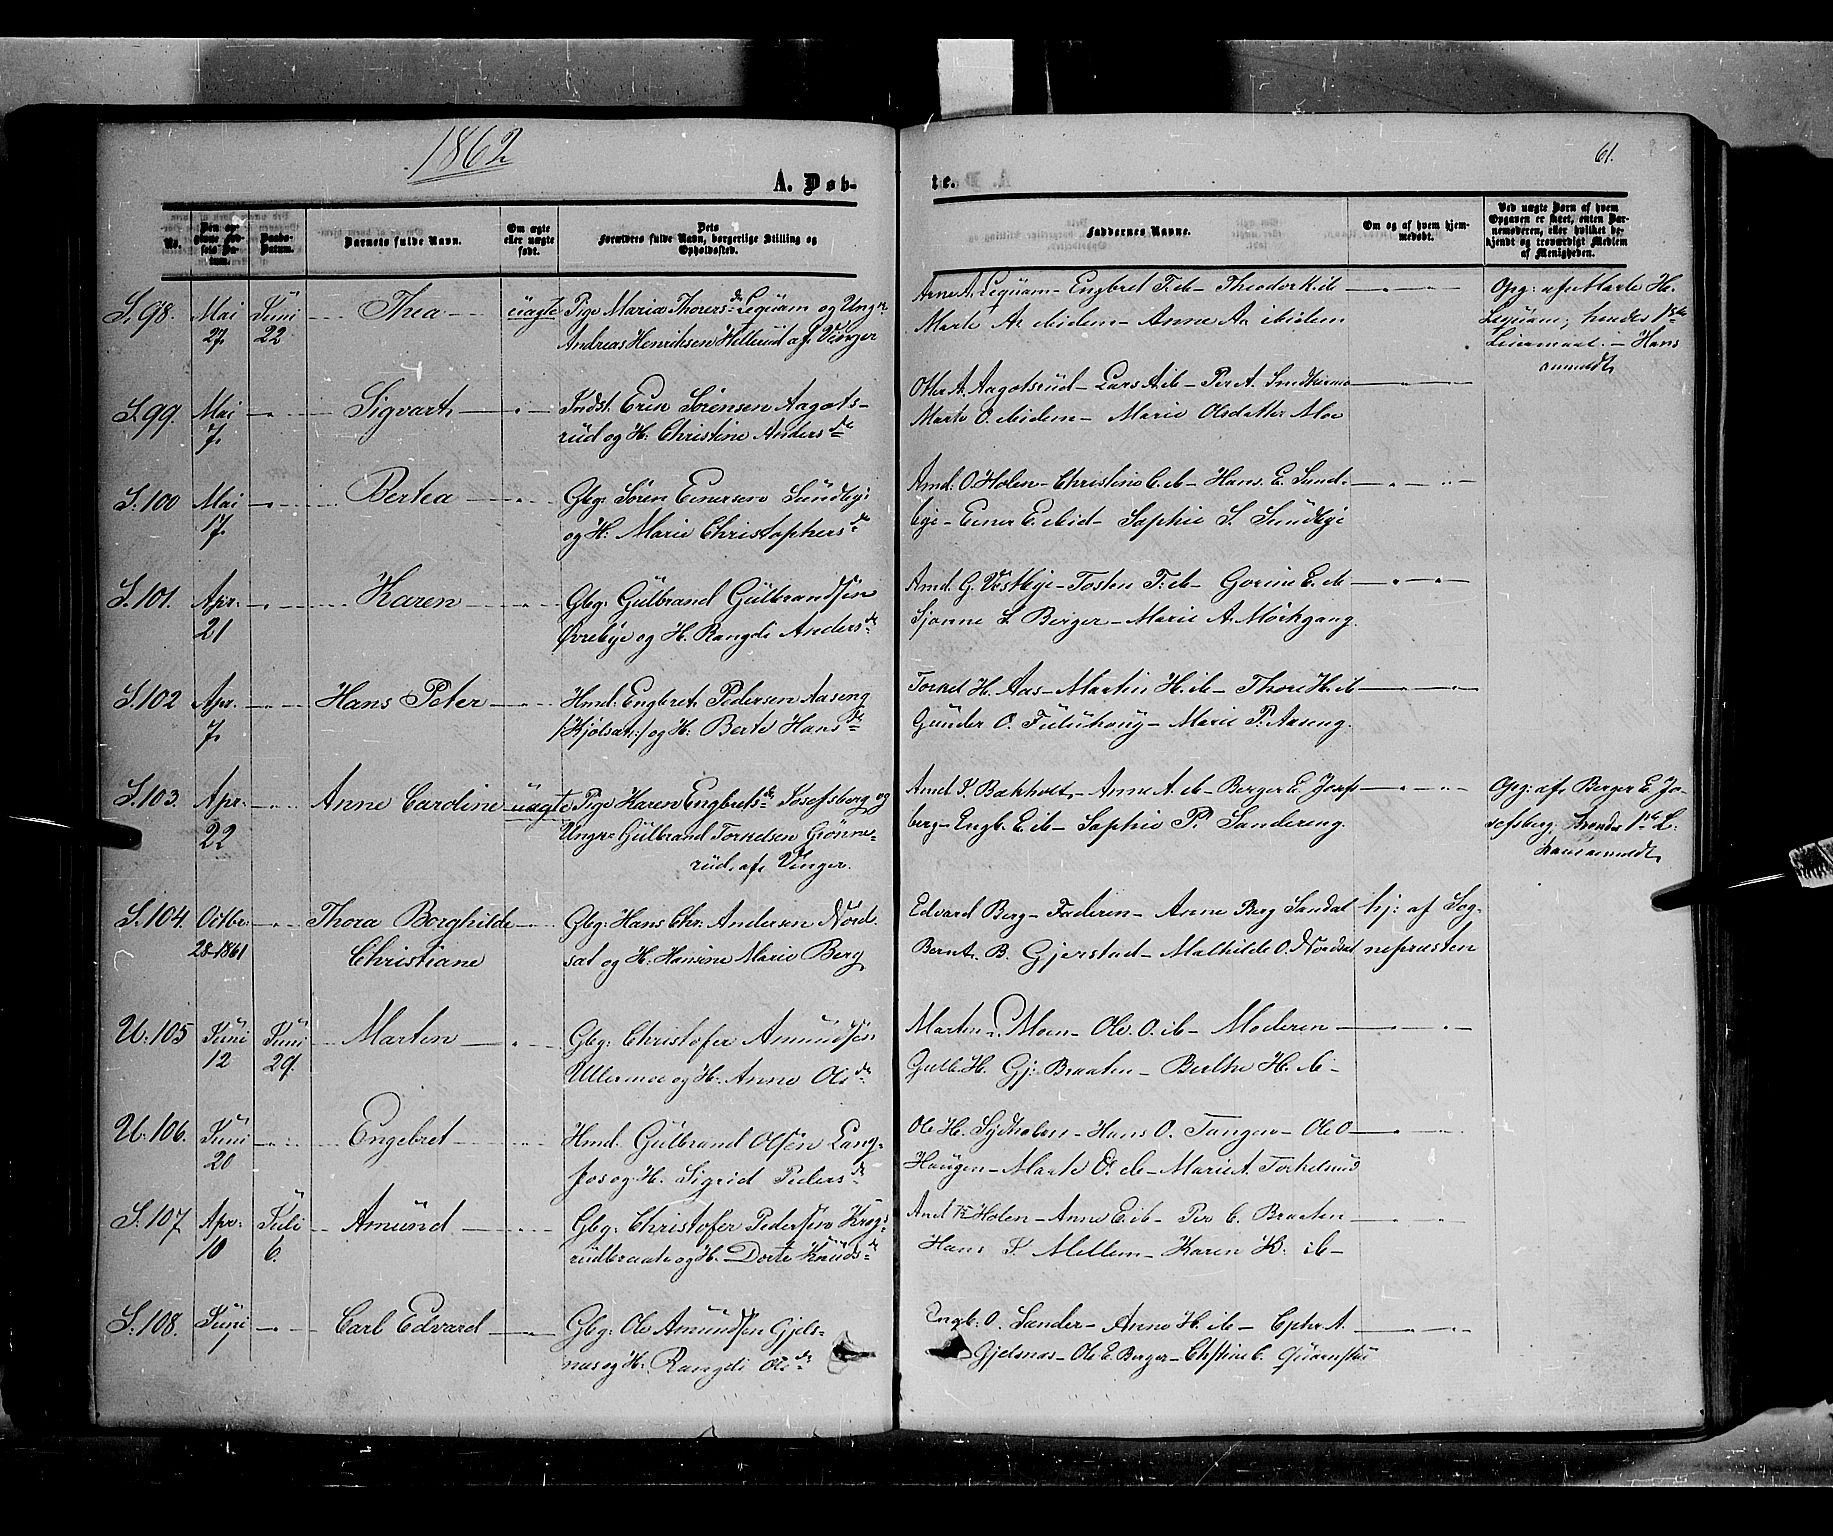 1862
61.
A. Døb-
te.
No.
Barnets fulde Navn.
Om ægte eller uægte født.
Dets Forældres fulde Navn, borgerlige Stilling og Opholdssted.
Faddernes Navne.
Om og af hvem hjemmedøbt.
Ved uægte Børn af hvem Opgaven er skeet, enten Barnemoderen, eller hvilket bekjendt og troværdigt Medlem af Menigheden.
S. 98. Mai 27. Juni 22 Thea uægte Pige Maria Thorers dr Leqvam og Ungk.
Andreas Henriksen Hellerud af Vinger
Arne A. Leqvam - Engbret T. ib - Theodor K. ib
Marte A. ibidem - Anne A. ibidem
Opg: af Marte H.
Leqvam; hendes 1ste
Leiermaal. - Hans
anmeldt
S. 99. Mai 7. Sigvart Indst. Even Sörensen Aagots-
rud og H: Christine Anders dr
Otter A. Aagotsrud - Lars A. ib - Per A.
Marte O. ibidem - Marie Olsdatter Moe
S. 100 Mai 17. Bertea Gbg: Sören Enersen Sundbye
og H: Marie Christophers dr
Amd: O. Holen - Christine C. ib - Hans E. Sund-
bye - Ener E. ibid - Sophie S. Sundbye
S. 101. Apr. 21 Karen Gbg: Gulbrand Gulbrandsen
Øvrebye og H. Rangdi Anders dr
Amd. G. Vestbye - Tosten T. ib - Gorine E. ib
Sjønne L. Berger - Marie A. Mörkgang.
S. 102 Apr. 7. Hans Peter Hmd. Engbret Pedersen Aaseng
/:Kjølsæt:/ og H: Berte Hans dr
Torkel H. Aas - Martin H. ib - Thore H. ib
Gunder O. Fuluhoug - Marie P. Aaseng.
S. 103. Apr. 22 Anne Caroline uægte Pige Karen Engbrets dr Josefsberg og
Ungk. Gulbrand Torkelsen Gronne-
rud, af Vinger.
Amd. P. Bakholt - Anne A. ib - Berger E. Josefs
berg - Engb. E. ib - Sophie P. Sandereng.
Opg: af Berger E. Jo-
sefsberg. hendes 1ste L.
Hans anmeldt
S. 104. Octbr. 28-1861 Thora Borghilde
Christiane
Gbg: Hans Chr. Andersen Nord-
sat og H: Hansine Marie Berg
Edvard Berg - Faderen - Anne Berg Sandal
Bernt B. Gjerstad - Mathilde O. Nordsat
hj: af Sog-
nepræsten
U. 105 Juni 12 Juni 29. Marten Gbg: Christofer Amundsen
Ullermoe og H: Anne Ols dr
Marten Moen - Ole O. ib - Moderen
Gulb. H. Gj: Braaten - Berthe H. ib -
U. 106. Juni 20 Engebret Hmd. Gulbrand Olsen Lang-
fos og H. Sigrid Peders dr
Ole H. Sydholen - Hans O. Tangen - Ole O
Haugen - Marte O. ib - Marie A. Torkelsrud
S. 107 Apr. 10 Juli 6. Amund Gbg: Christofer Pedersen Krogs-
rudbraate og H. Dorte Knuds dr
And K Holen - Anne E. ib - Per C. Braaten
Hans P. Mellem - Karen H. ib -
S. 108. Juni 1 Carl Edvard Gbg: Ole Amundsen Gjels-
nes og H: Rangdi Ols dr
Engb. O. Sander - Anne H. ib - Cphr A.
Gjelsnæs - Ole E. Berger - Chstine C.